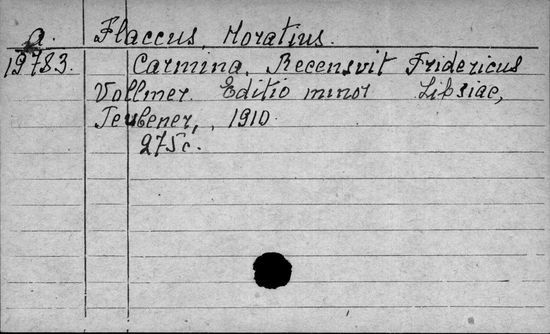 a. Flaccus, Horatius.
19783. Carmina. Recensvit Fridericus
Vollmer. Editio minor Libsiae,
Teubener, , 1910.
275 c.